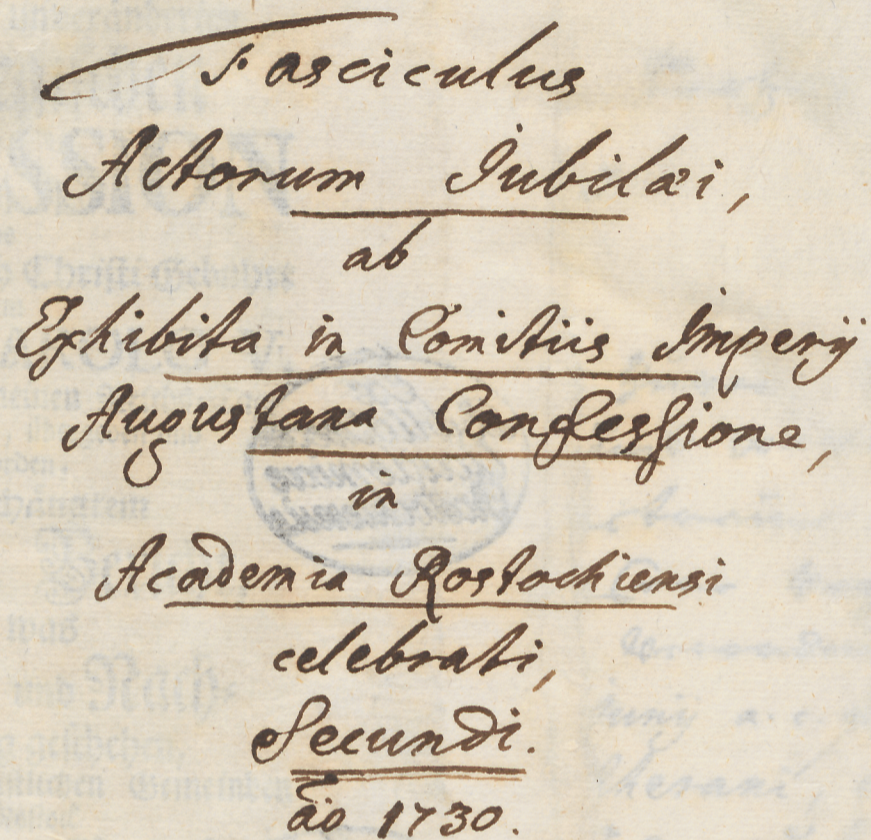 Fasciculus
Actorum Iubilæi,
ab
Exhibita in Comitiis Imperij
Augustana Confessione,
in
Academia Rostochiensi
celebrati,
Secundi.
aō 1730.